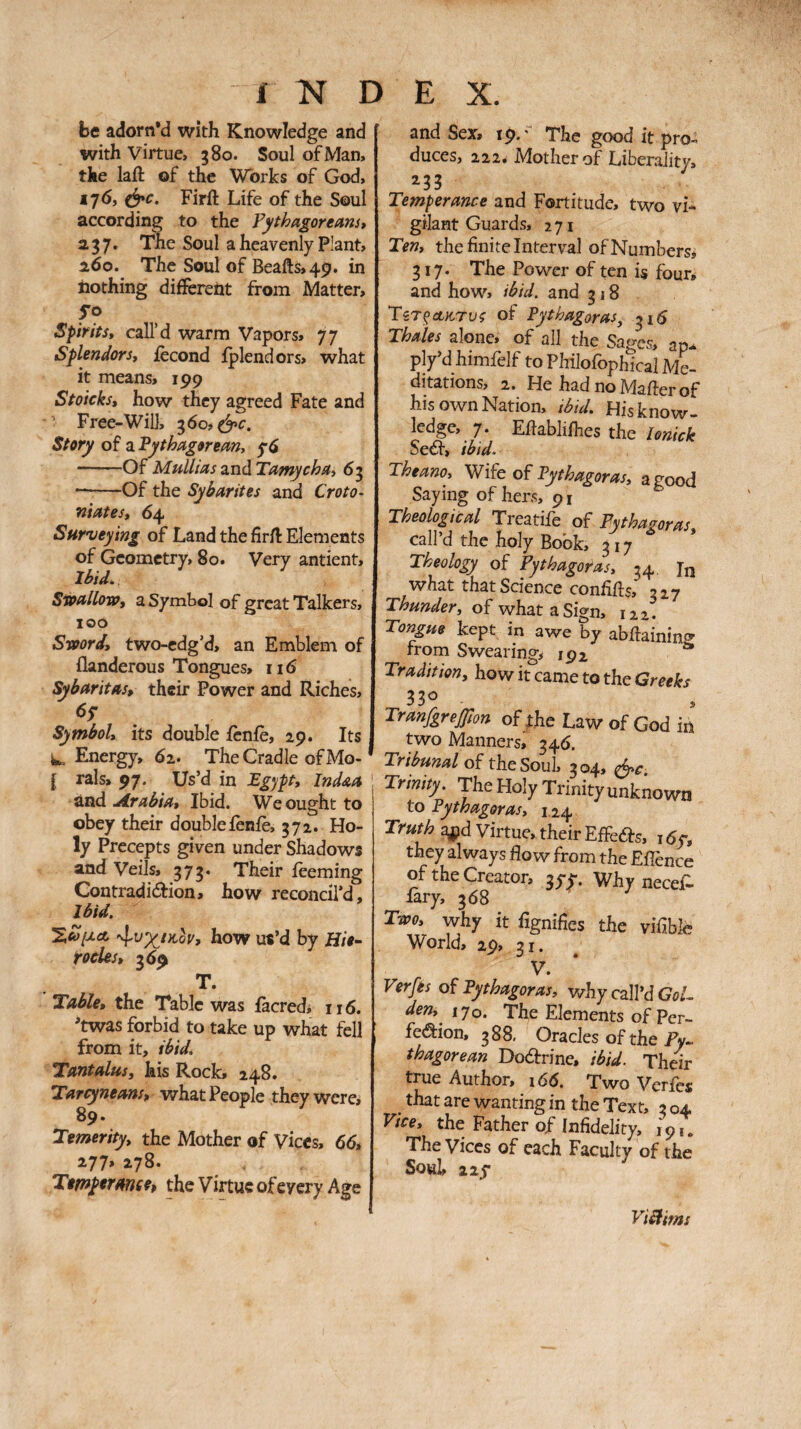 INDEX.
be adorn'd with Knowledge and
with Virtue, 380. Soul of Man,
the laſt of the Works of God,
176, &c. Firſt Life of the Soul
according to the Pythagoreans,
237. The Soul a heavenly Plant,
260. The Soul of Beaſts, 49. in
nothing different from Matter,
50
Spirits, call'd warm Vapors, 77
Splendors, ſecond ſplendors, what
it means, 199
Stoicks, how they agreed Fate and
Free-Will, 360, &c.
Story of a Pythagorean, 56
——Of Mullias and Tamycha, 63
——Of the Sybarites and Croto-
niates, 64
Surveying of Land the firſt Elements
of Geometry, 80. Very antient,
Ibid.
Swallow, a Symbol of great Talkers,
100
Sword, two-edg'd, an Emblem of
ſlanderous Tongues, 116
Sybaritas, their Power and Riches,
65
Symbol, its double ſenſe, 29. Its
Energy, 62. The Cradle of Mo-
rals, 97. Us'd in Egypt, Indæa
and Arabia, Ibid. We ought to
obey their double ſenſe, 372. Ho-
ly Precepts given under Shadows
and Veils, 373. Their ſeeming
Contradiction, how reconcil'd,
Ibid.
Σῶμα ψυχικὸν, how us'd by Hie-
rocles, 369
T.
Table, the Table was ſacred, 116.
'twas forbid to take up what fell
from it, ibid.
Tantalus, his Rock, 248.
Tarcyneans, what People they were,
89.
Temerity, the Mother of Vices, 66,
277, 278.
Temperance, the Virtue of every Age
and Sex, 19. The good it pro-
duces, 222. Mother of Liberality,
233
Temperance and Fortitude, two vi-
gilant Guards, 271
Ten, the finite Interval of Numbers,
317. The Power of ten is four,
and how, ibid. and 318
Τετρακτυς of Pythagoras, 316
Thales alone, of all the Sages, ap-
ply'd himſelf to Philoſophical Me-
ditations, 2. He had no Maſter of
his own Nation, ibid. His know-
ledge, 7. Eſtabliſhes the Ionick
Sect, ibid.
Theano, Wife of Pythagoras, a good
Saying of hers, 91
Theological Treatiſe of Pythagoras,
call'd the holy Book, 317
Theology of Pythagoras, 34. In
what that Science conſiſts, 327
Thunder, of what a Sign, 122.
Tongue kept in awe by abſtaining
from Swearing, 192
Tradition, how it came to the Greeks,
330
Tranſgreſſion of the Law of God in
two Manners, 346.
Tribunal of the Soul, 304, &c.
Trinity. The Holy Trinity unknown
to Pythagoras, 124
Truth and Virtue, their Effects, 165,
they always flow from the Eſſence
of the Creator, 355. Why neceſ-
ſary, 368
Two, why it ſignifies the viſible
World, 29, 31.
V.
Verſes of Pythagoras, why call'd Gol-
den, 170. The Elements of Per-
fection, 388. Oracles of the Py-
thagorean Doctrine, ibid. Their
true Author, 166. Two Verſes
that are wanting in the Text, 304
Vice, the Father of Infidelity, 191.
The Vices of each Faculty of the
Soul, 225
Victims